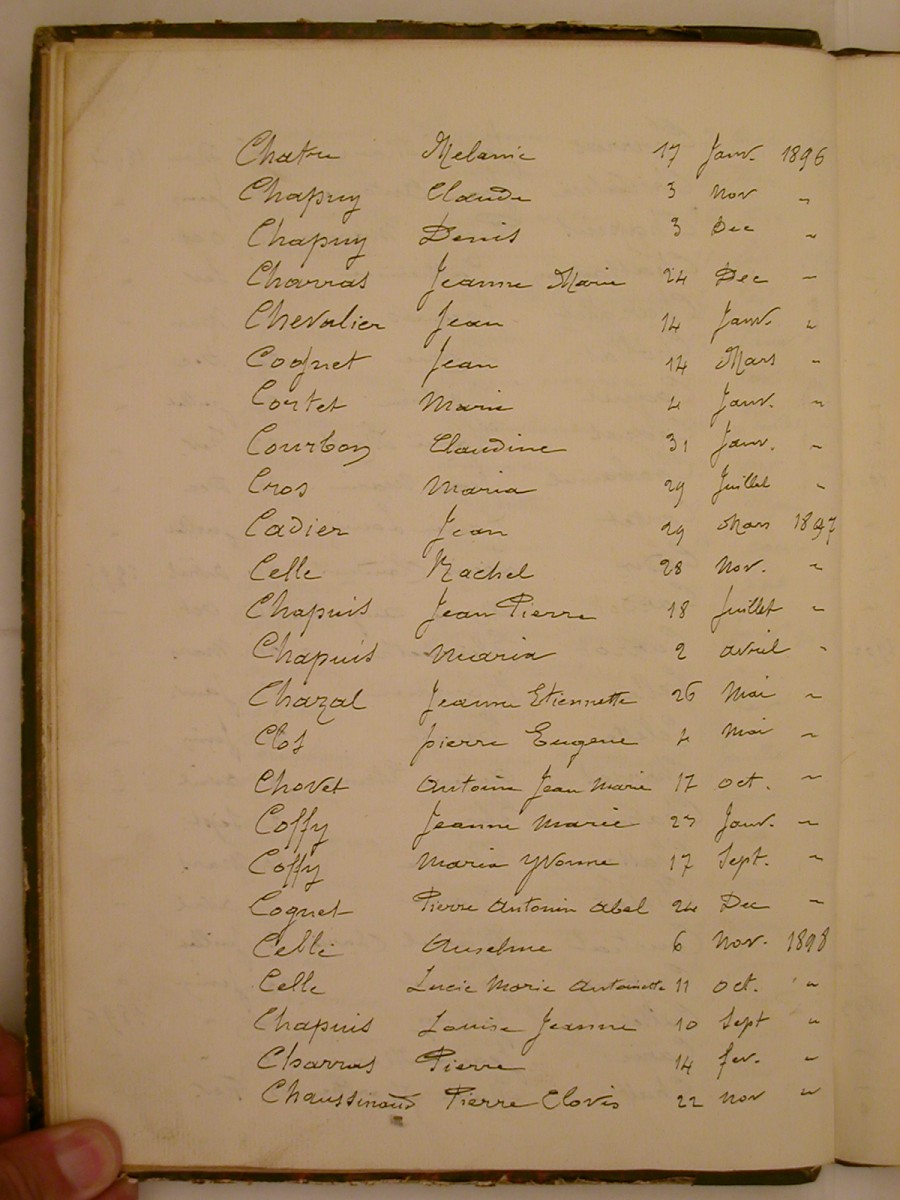 Chatre Melanie 17 Janv. 1896
Chapuy Claude 3 Nov "
Chapuy Denis 3 Dec "
Charras Jeanne Marie 24 Dec "
Chevalier Jean 14 Janv. "
Coquet Jean 14 Mars "
Cortet Marie 4 Janv. "
Courbon Claudine 31 Janv. "
Cros Maria 29 Juillet "
Cadier Jean 29 Mars 1897
Celle Rachel 28 Nov. "
Chapuis Jean Pierre 18 Juillet "
Chapuis Maria 2 avril "
Chazal Jeanne Etiennette 26 Mai "
Clot pierre Eugene 4 Mai "
Chovet Antoine Jean Marie 17 oct. "
Coffy Jeanne Marie 23 Janv. "
Coffy Maria Yvonne 17 Sept. "
Coquet Pierre Antonin Abel 24 Dec "
Celle Anselme 6 Nov. 1898
Celle Lucie Marie Antoinette 11 oct. "
Chapuis Louise Jeanne 10 Sept "
Charras Pierre 14 fev. "
Chaussinand Pierre Clovis 22 nov "